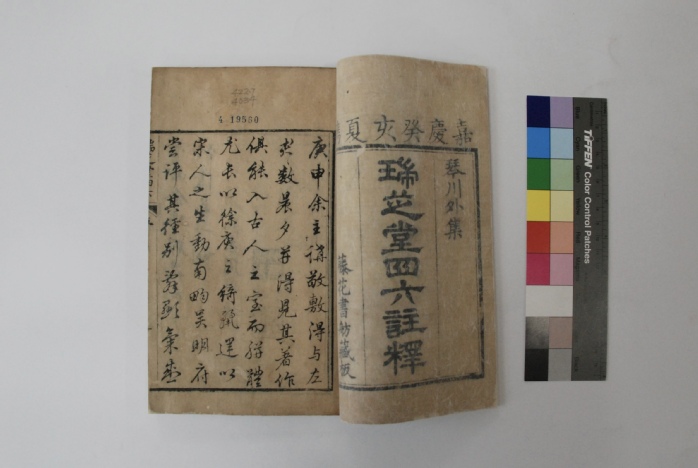 嘉慶癸亥夏
琴川外集
瑞芝堂四六註釋
藤花書舫藏版
4 19550
庚申余主講敬敷得与左
夾數晨夕前得見其著作
俱能入古人之室而駢體
尤長以徐庾之綺號運以
宋人之生動南畇吴明府
嘗评其種別
TIFFEN Color Control Patches